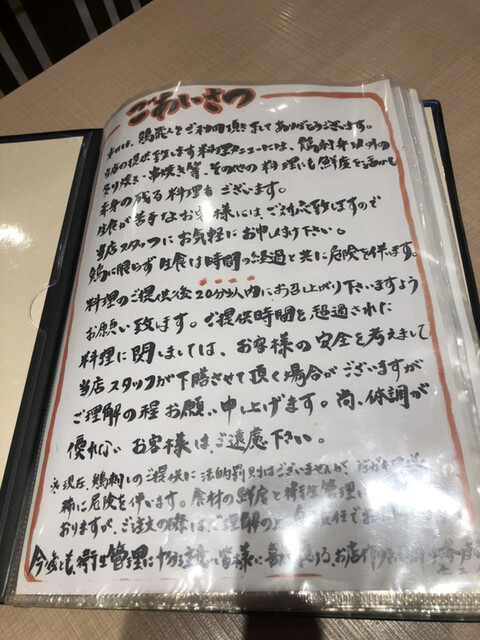 ごあいさつ
本日は、鶏蔵人をご利用頂きましてありがとうございます。
当店の提供致します料理メニューには、鶏刺身以外の
炙り焼き・串焼き等、その他の料理にも鮮度を活かし
半身の残る料理もございます。
生食が苦手なお客様には、ご対応致しますので
当店スタッフにお気軽にお申し付け下さい。
鶏に限らず生食は時間の経過と共に危険を伴います。
料理のご提供後20分以内にお召し上がり下さいますよう
お願い致します。ご提供時間を超過された
料理に関しましては、お客様の安全を考えまして
当店スタッフが下膳させて頂く場合がございますが
ご理解の程お願い申し上げます。尚、体調が
優れないお客様は、ご遠慮下さい。
※現在、鶏刺しのご提供に法的罰則はございませんが、
特に危険を伴います。食材の鮮度と衛生管理に
おりますが、ご注文の際は、ご理解の上
今後とも、衛生管理に十分注意し皆様に喜んで頂ける、お店作りを